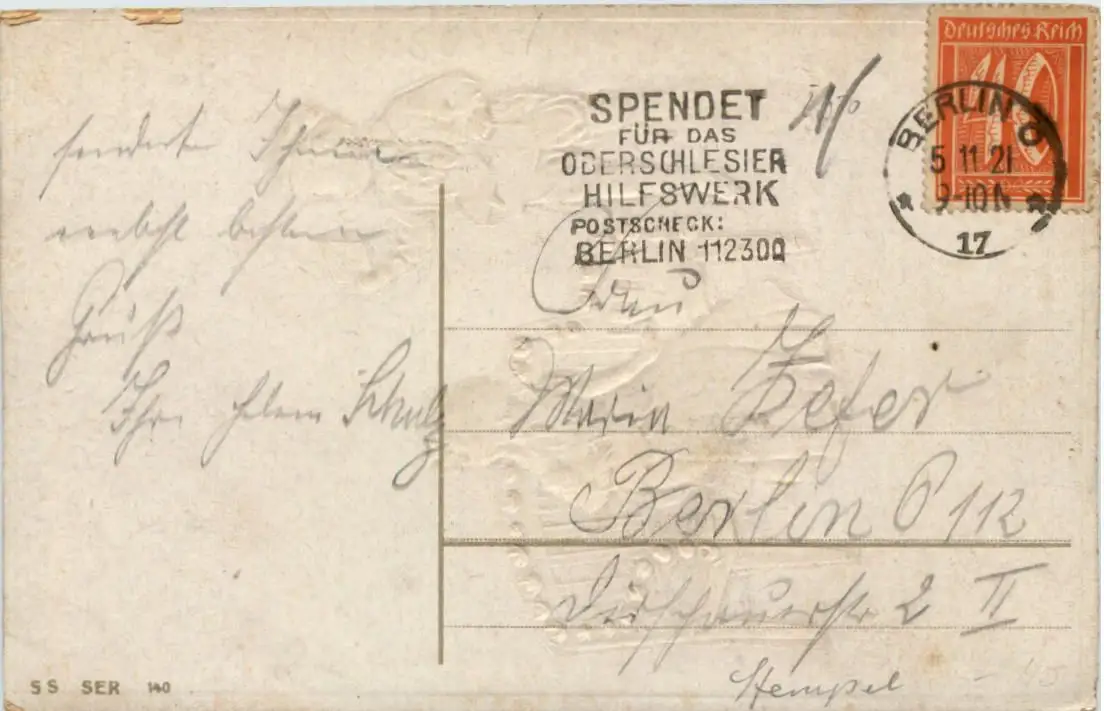 sendet Ihnen
nebst besten
Gruß
Ihre Schulz
SPENDET
FÜR DAS
OBERSCHLESIER
HILFSWERK
POSTSCHECK:
BERLIN 112300
Deutsches Reich
10
BERLIN O
5 11 21
9-10 N
17
Frau
Maria
Berlin O 112
Dirschauerstr 2 II
Stempel
SS SER 140